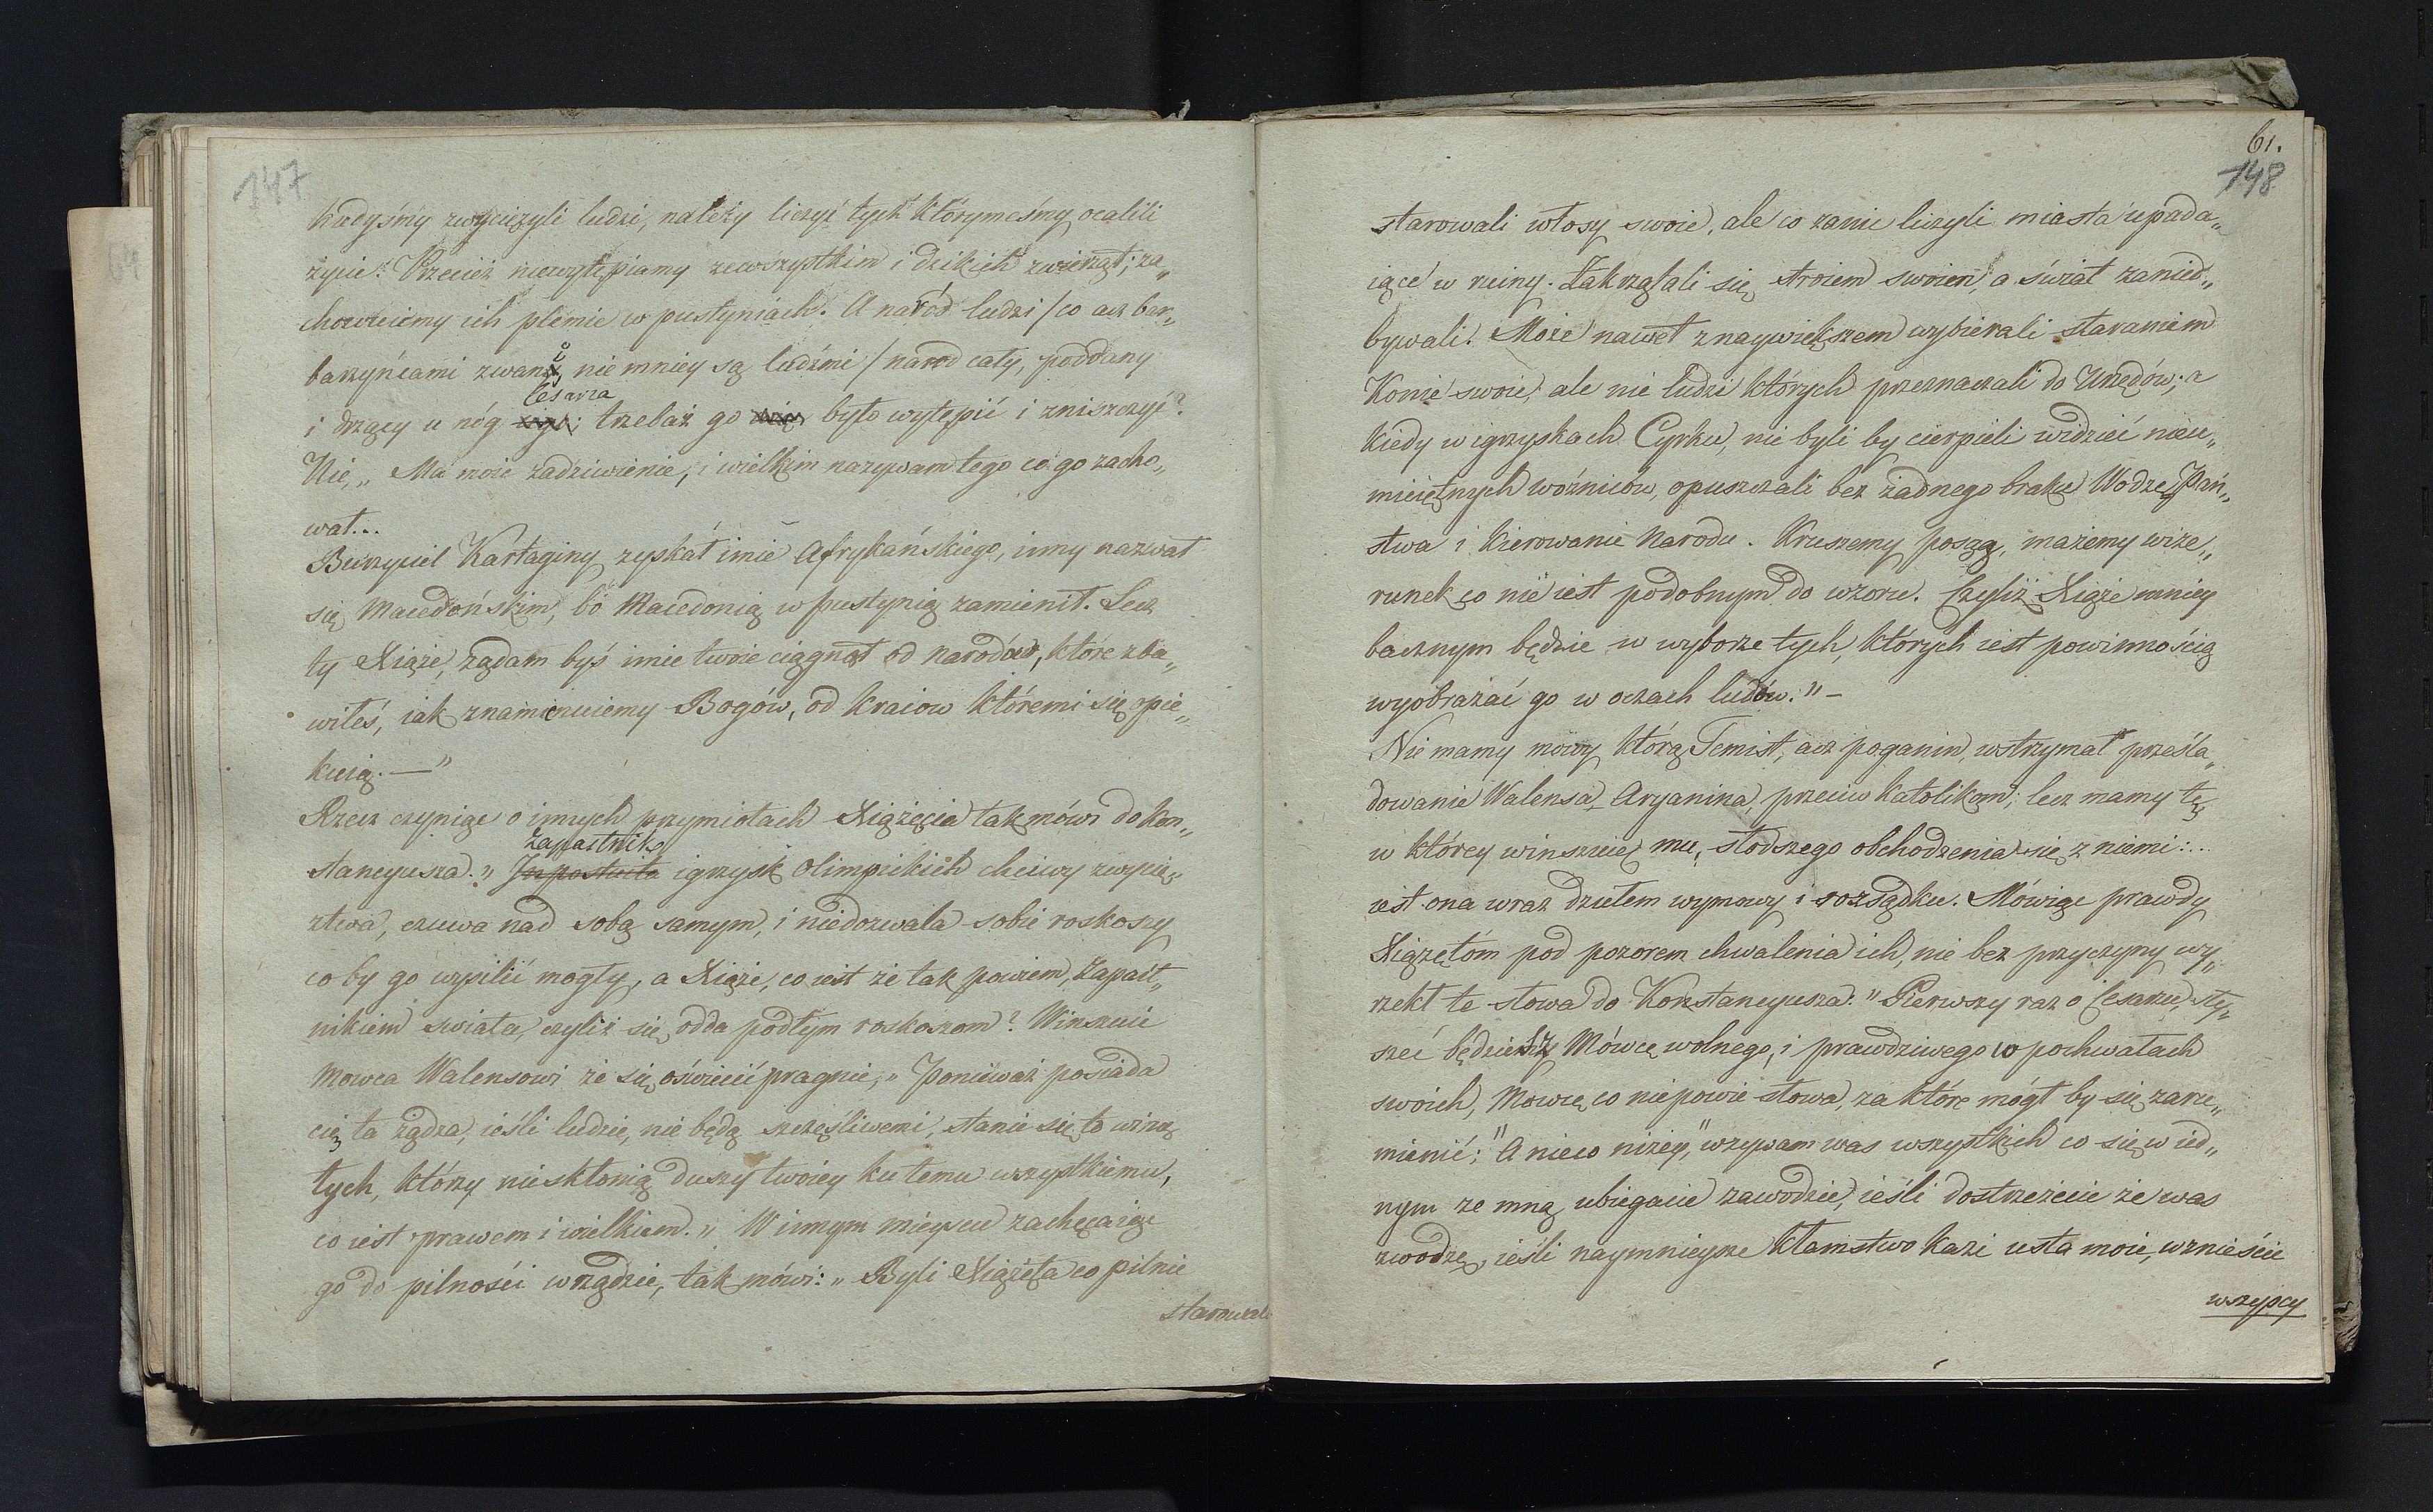 147
kiedyśmy zwyciężyli ludzi, należy liczyć tych którymeśmy ocalili
życie? Przecież niewytępiamy zewszystkim i dzikich zwierząt; za„
chowuiemy ich plemie w pustyniach. A naród ludzi / co acz bar„
barzyńcami zwani, nie mniey są ludźmi / narod cały, poddany
Cesarza
i drżący u nóg iego: trzebaż go było wytępić i zniszczyć?
Nie, „ Ma moie zadziwienie, i wielkim nazywam tego co go zacho„
wał...
Burzyciel Kartaginy zyskał imie Afrykańskiego, inny nazwał
się Macedońskim, bo Macedonią w pustynią zamienił. Lecz
ty Xiąże, żądam byś imie twoie ciągnął od narodów, które zba„
wiłeś, iak znamionuiemy Bogów, od kraiow któremi się opie„
kuią. — "
Rzecz czyniąc o innych przymiotach Xiążęcia tak mówi do Kon„
Zapaśnik
stancyusza: " igrzysk Olimpickich chciwy zwycię„
ztwa, czuwa nad sobą samym, i niedozwala sobie roskoszy
co by go wysilić mogły, a Xiąże, co iest że tak powiem, Zapaśt„
nikiem świata, czyliż się odda podłym roskoszom? Winszuie
Mowca Walensowi że się oświecić pragnie, „ Ponieważ posiada
cię ta żądza, ieśli ludzie, nie będą szczęśliwemi, stanie się to winą
tych, którzy niesktonią duszy twoiey ku temu wszystkiemu,
co iest prawem i wielkiem. „ W innym mieyscu zachęcaiąc
go do pilności w rządzie, tak mówi: „ Byli Xiążęta co pilnie
starowali
61.
148
starowali włosy swoie, ale co zanic liczyli miasta upada„
iące w ruiny. Zakrzątali się stroiem swoiem, a świat zanied„
bywali. Może nawet z naywiększem wybierali staraniem
Konie swoie, ale nie ludzi których przeznaczali do Urzędów; a
kiedy w igrzyskach Cyrku, nie byli by cierpieli widzieć nieu„
mieiętnych woźniców, opuszczali bez żadnego braku Wodzę Pań„
stwa i kierowanie Narodu. Kruszemy posąg, mażemy wize„
runek co nie iest podobnym do wzoru. Czyliż Xiąże mniey
bacznym będzie w wyborze tych, których iest powinnością
wyobrażać go w oczach ludów." –
Nie mamy mowy którą Temist, acz poganin, wstrzymał prześla„
dowanie Walensa Aryanina, przeciw Katolikom; lecz mamy tę,
w którey winszuie mu, słodszego obchodzenia się z niemi:...
iest ona wraz dziełem wymowy i rozsądku. Mówiąc prawdy
Xiążętóm pod pozorem chwalenia ich, nie bez przyczyny wy„
rzekł te słowa do Konstancyusza: " Pierwszy raz o Cesarzu, sły„
szeć będziesz Mówcę wolnego, i prawdziwego w pochwałach
swoich, Mowcę co niepowie słowa, za które mógł by się zaru„
mienić;" A nieco niżey, "wzywam was wszystkich co się w ied„
nym ze mną ubiegacie zawodzie, ieśli dostrzeżecie że was
zwodzę, ieśli naymnieysze kłamstwo kazi usta moie, wznieście
wszyscy